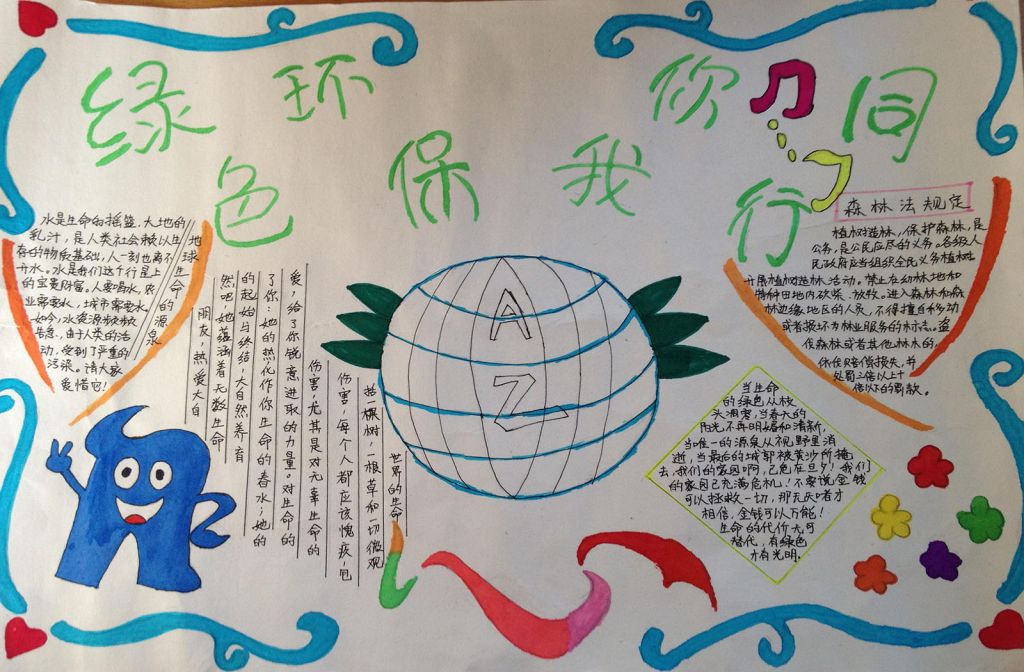 绿色环保我你同行
水是生命的摇篮,大地的
乳汁,是人类社会赖以生
存的物质基础,人一刻也离不
开水。水是我们这个行星上
的宝贵财富。人要喝水,农
业需要水,城市需要水。
如今,水资源频频
告急,由于人类的活
动,受到了严重的
污染。请大家
爱惜它!
地球生命的源泉
朋友,热爱大自
然吧,她蕴涵着无数生命
的起始与终结,大自然养育
了你:她的热化作你生命的春水;她的
爱,给了你锐意进取的力量。对生命的
伤害,尤其是对无辜生命的
伤害,每个人都应该愧疚,包
括一棵树,一根草和一切微观
世界的生命
A
Z
森林法规定
植树造林,保护森林,是
公务,是公民应尽的义务。各级人
民政府应当组织全民义务植树
开展植树造林活动。禁止在幼林地和
特种田地内砍柴、放牧。进入森林和森
林边缘地区的人员,不得擅自移动
或者损坏为林业服务的标志。盗
伐森林或者其他林木的,
依法赔偿损失,并
处罚三倍以上十
倍以下的罚款。
当生命
的绿色从枝
头凋零,当春天的
阳光不再明媚和清新,
当唯一的源泉从视野里消
逝,当最后的城郭被黄沙所掩
去,我们的家园啊,已危在旦夕!我们
的家园已充满危机!不要说金钱
可以拯救一切,那无知者才
相信,金钱可以万能!
生命的代价无可
替代,有绿色
才有光明。